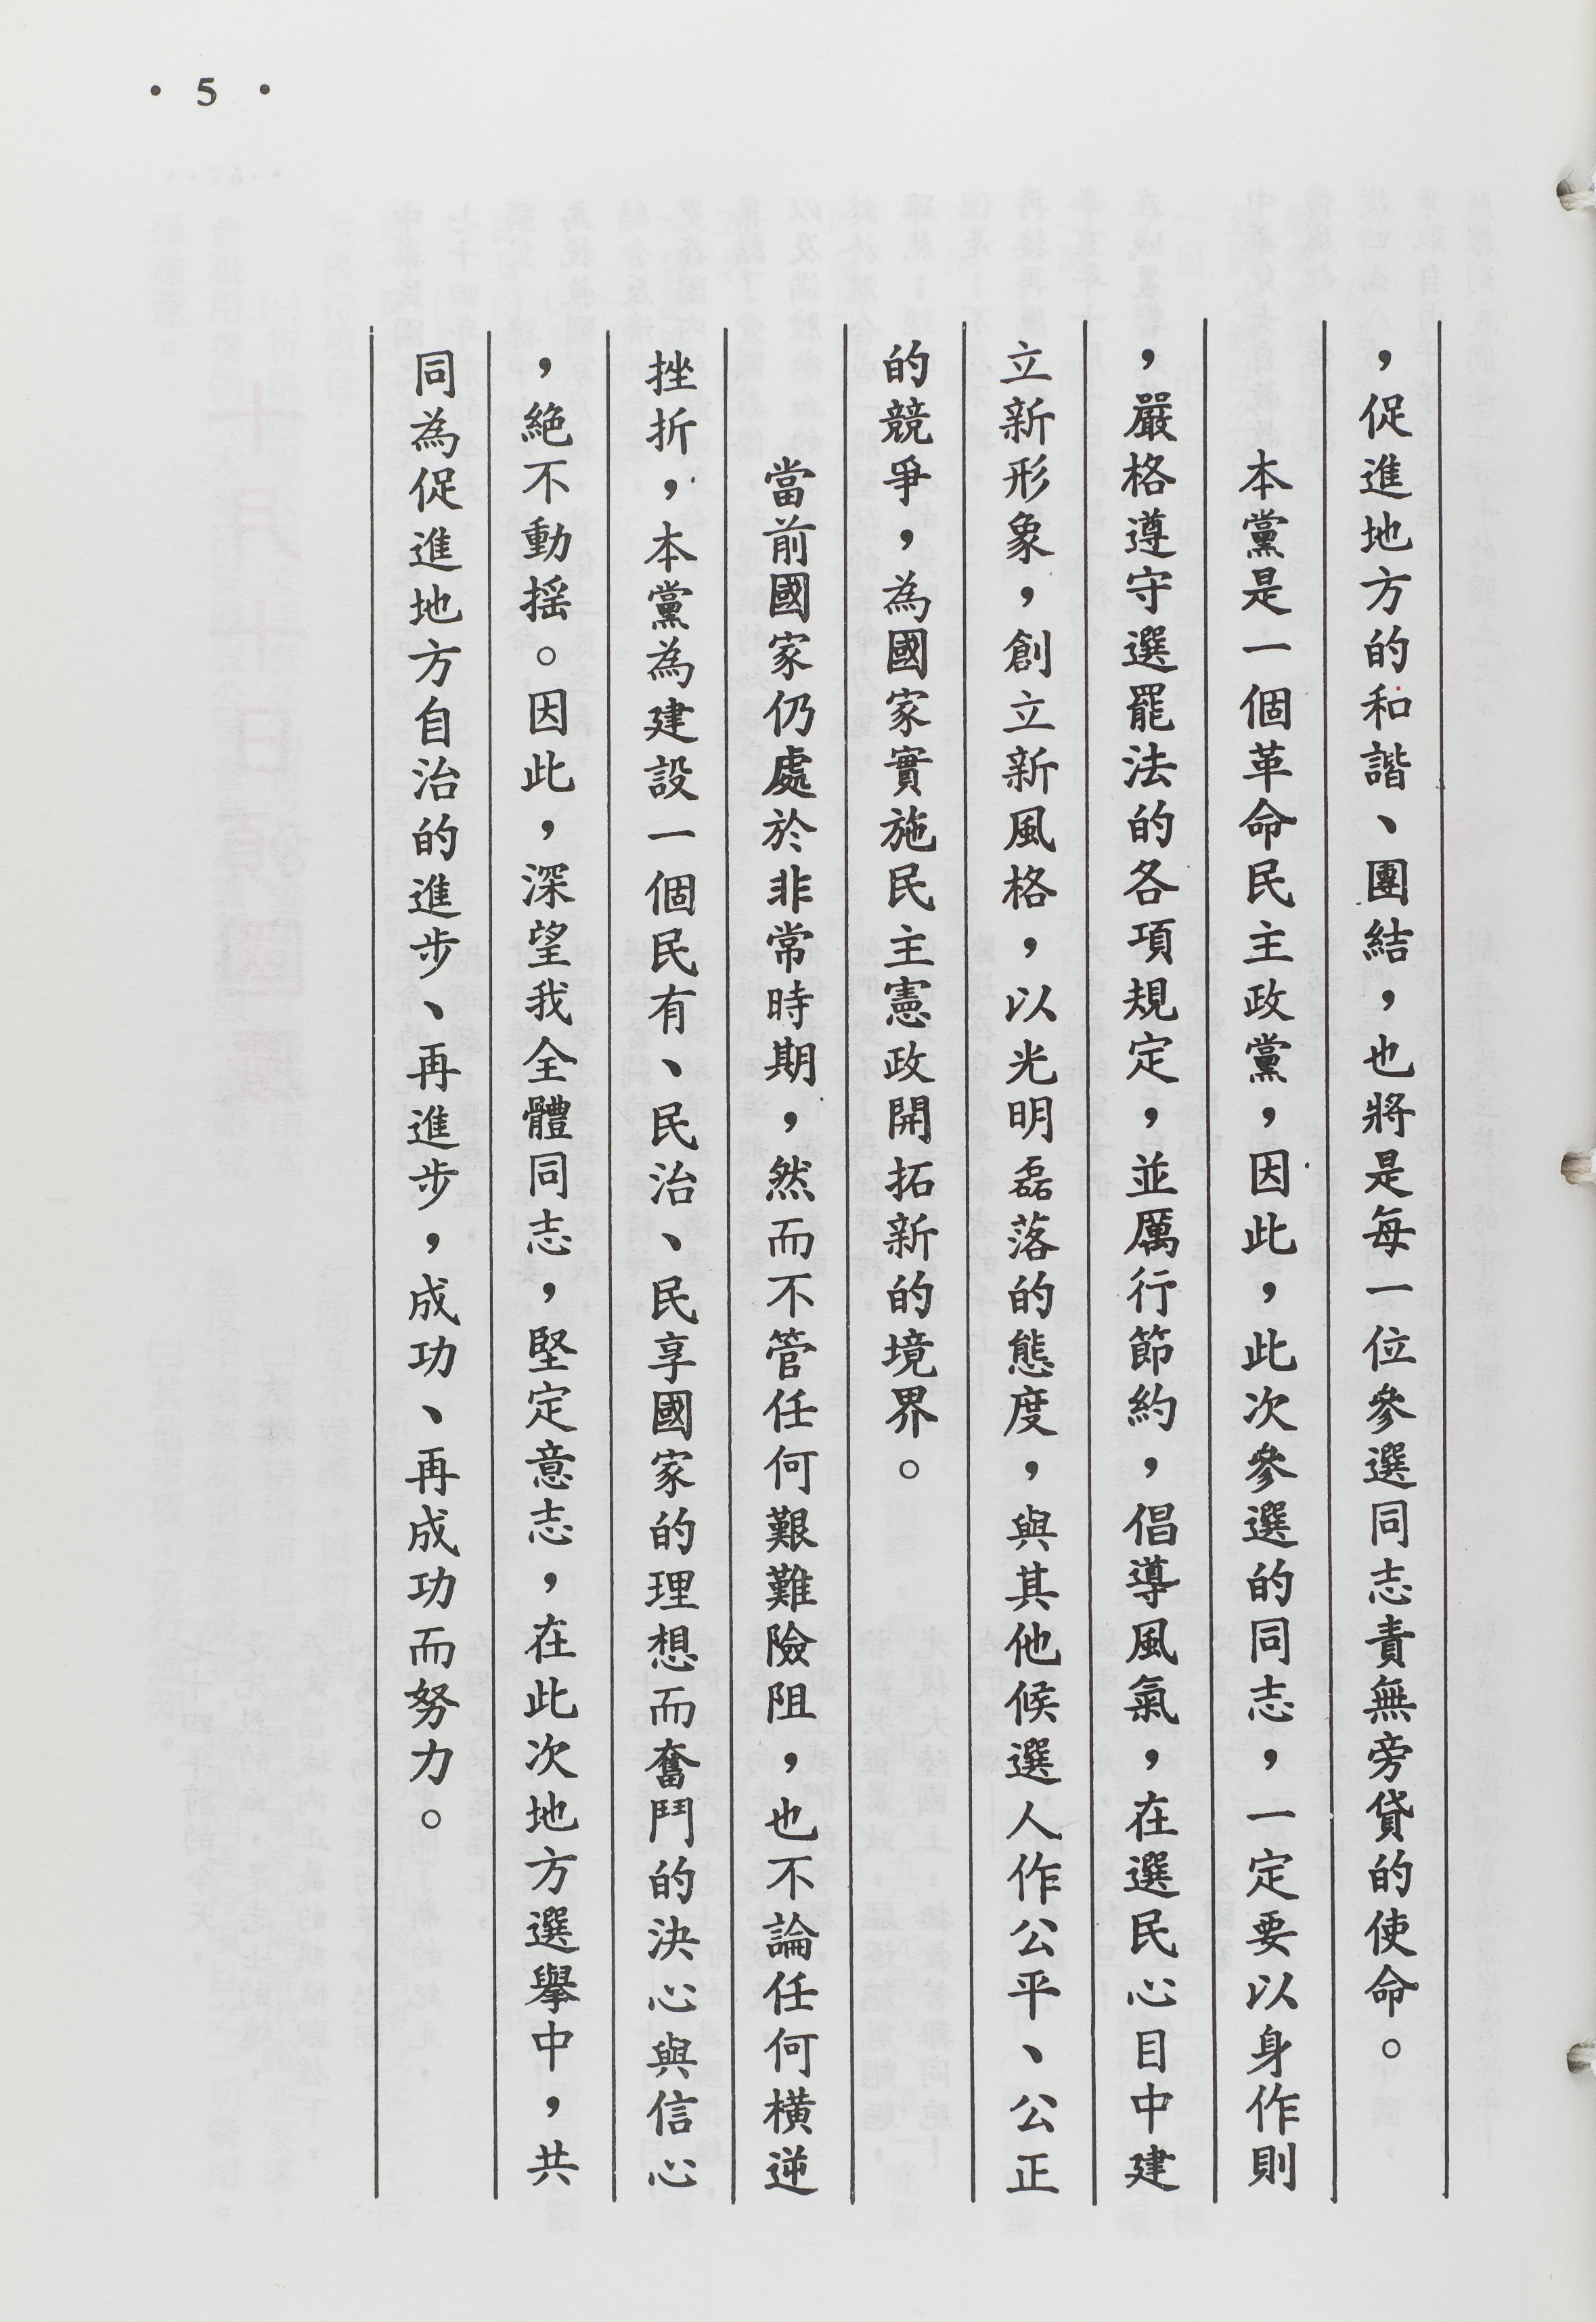 • 5 •
，促進地方的和諧、團結，也將是每一位參選同志責無旁貸的使命。
本黨是一個革命民主政黨，因此，此次參選的同志，一定要以身作則
，嚴格遵守選罷法的各項規定，並厲行節約，倡導風氣，在選民心目中建
立新形象，創立新風格，以光明磊落的態度，與其他候選人作公平、公正
的競爭，為國家實施民主憲政開拓新的境界。
當前國家仍處於非常時期，然而不管任何艱難險阻，也不論任何橫逆
挫折，本黨為建設一個民有、民治、民享國家的理想而奮鬥的決心與信心
，絕不動搖。因此，深望我全體同志，堅定意志，在此次地方選舉中，共
同為促進地方自治的進步、再進步，成功、再成功而努力。